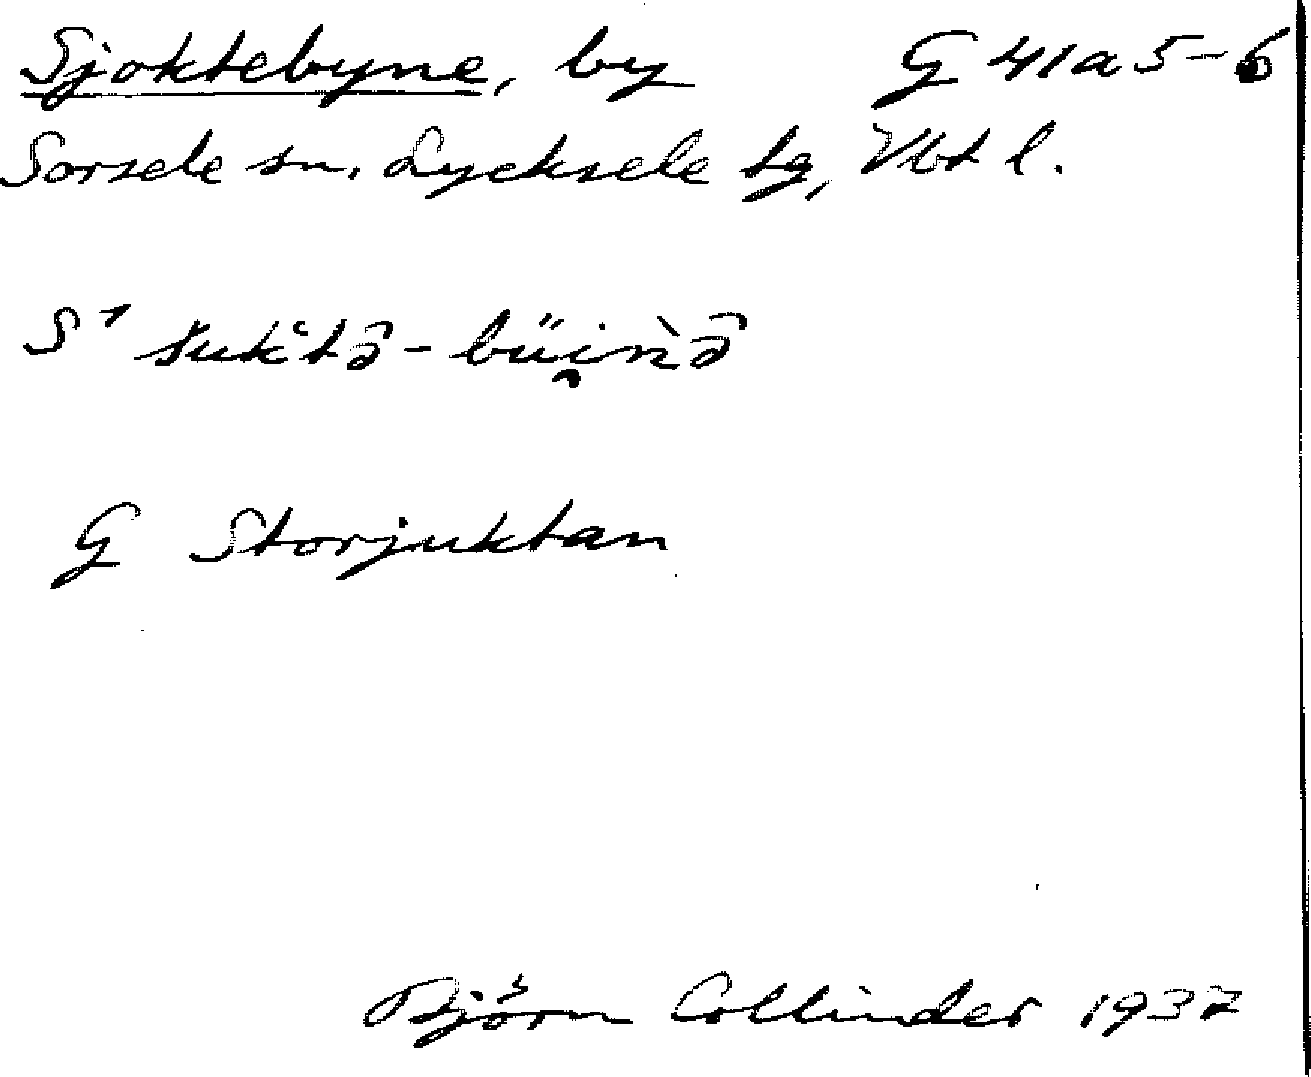 Sjoktebyne, by G 41a5-6
Sorsele sn. Lycksele tg, Vbt l.
G Storjuktan
Björn Collinder 1937